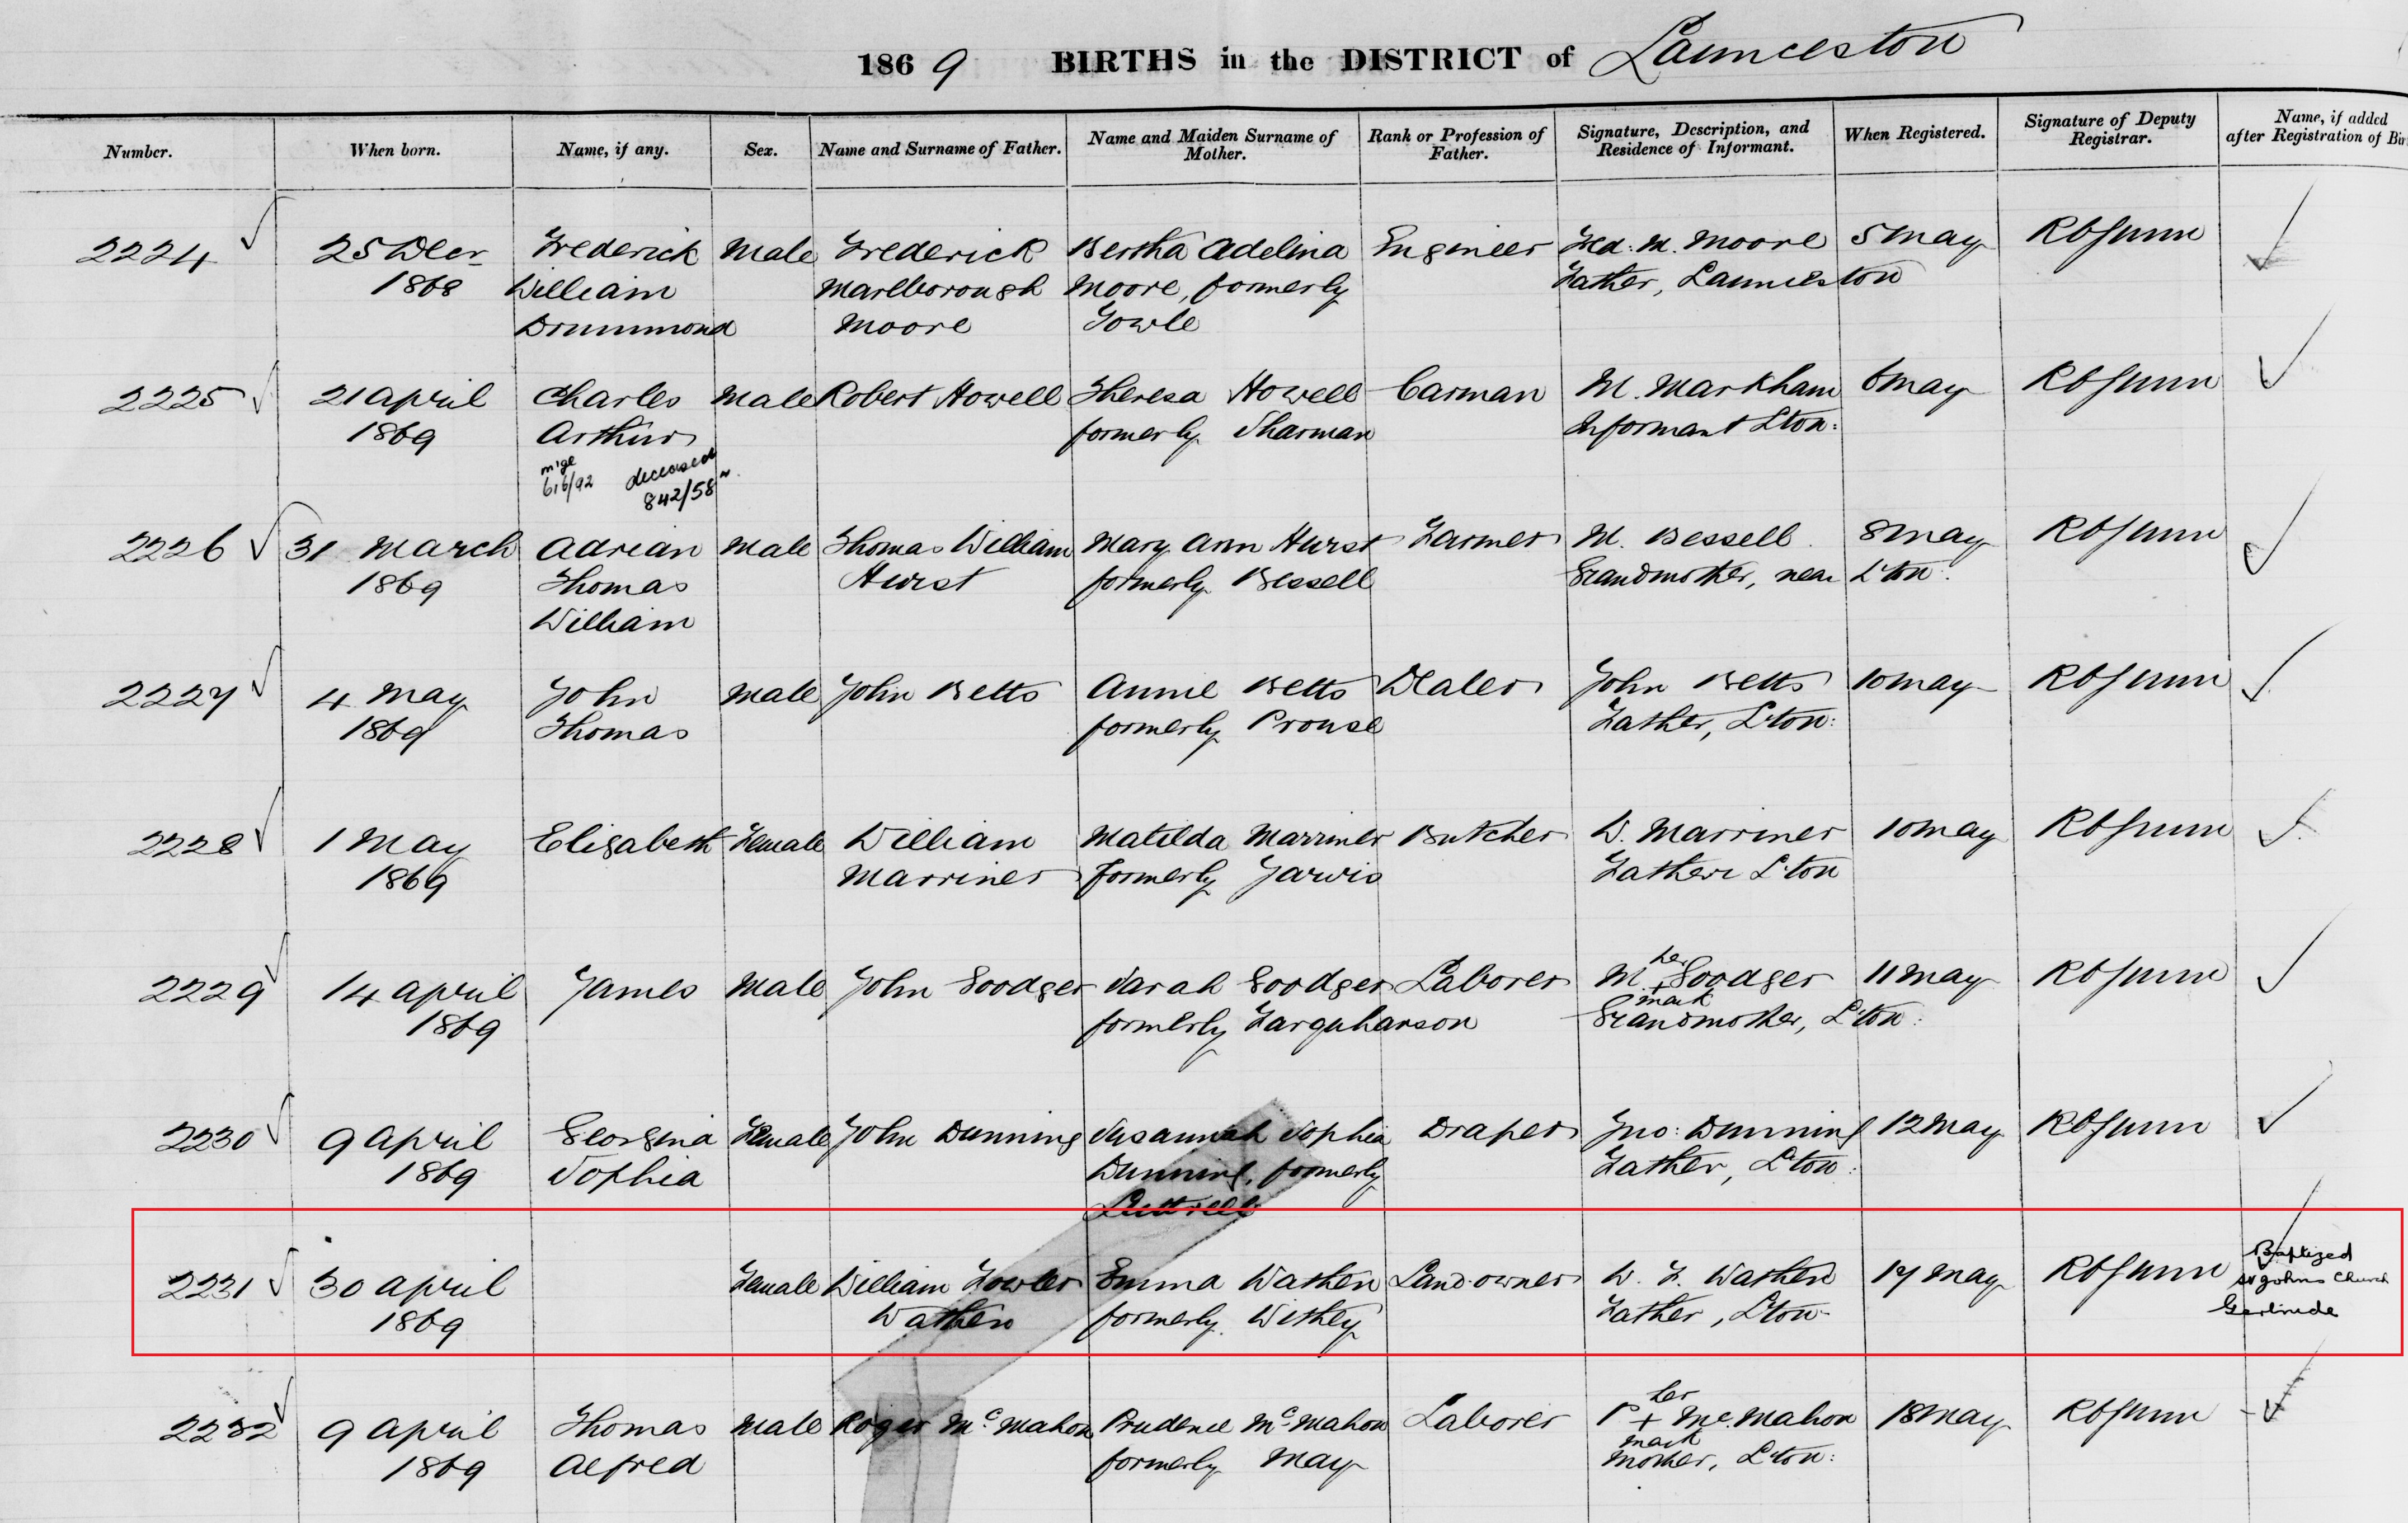 1869 BIRTHS in the DISTRICT of Launceston
Number. When born. Name, if any. Sex. Name and Surname of Father. Name and Maiden Surname of Mother. Rank or Profession of Father. Signature, Description, and Residence of Informant. When Registered. Signature of Deputy Registrar. Name, if added after Registration of Bir
2224 25 Decr Frederick Male Frederick Bertha Adelina Engineer Fred: M. Moore 5 May
1868 William Marlborough Moore, formerly Father, Launceston
Drummond Moore Fowle
2225 21 April Charles Male Robert Howell Theresa Howell Carman M. Markham 6 May
1869 Arthur formerly Sharman Informant L'ton:
m'ge 616/92 deceased 842/58
2226 31 March Adrian Male Thomas William Mary Ann Hurst Farmer M. Bessell 8 May
1869 Thomas Hurst formerly Bessell Grandmother, near L'ton:
William
2227 4 May John Male John Betts Annie Betts Dealer John Betts 10 May
1869 Thomas formerly Prouse Father, L'ton:
2228 1 May Elizabeth Female William Matilda Marriner Butcher W. Marriner 10 May
1869 Marriner formerly Jarvis Father L'ton
2229 14 April James Male John Goodger Sarah Goodger Laborer M. her + mark Goodger 11 May
1869 formerly Farquharson Grandmother, L'ton:
2230 9 April Georgina Female John Dunning Susannah Sophia Draper Jno: Dunning 12 May
1869 Sophia Dunning, formerly Father, L'ton:
Luttrell
2231 30 April Female William Fowler Emma Wathen Land-owner W. F. Wathen 17 May Baptized
1869 Wathen formerly Withey Father, L'ton St Johns Church
Gertrude
2232 9 April Thomas Male Roger McMahon Prudence McMahon Laborer P her + mark McMahon 18 May
1869 Alfred formerly May Mother, L'ton: